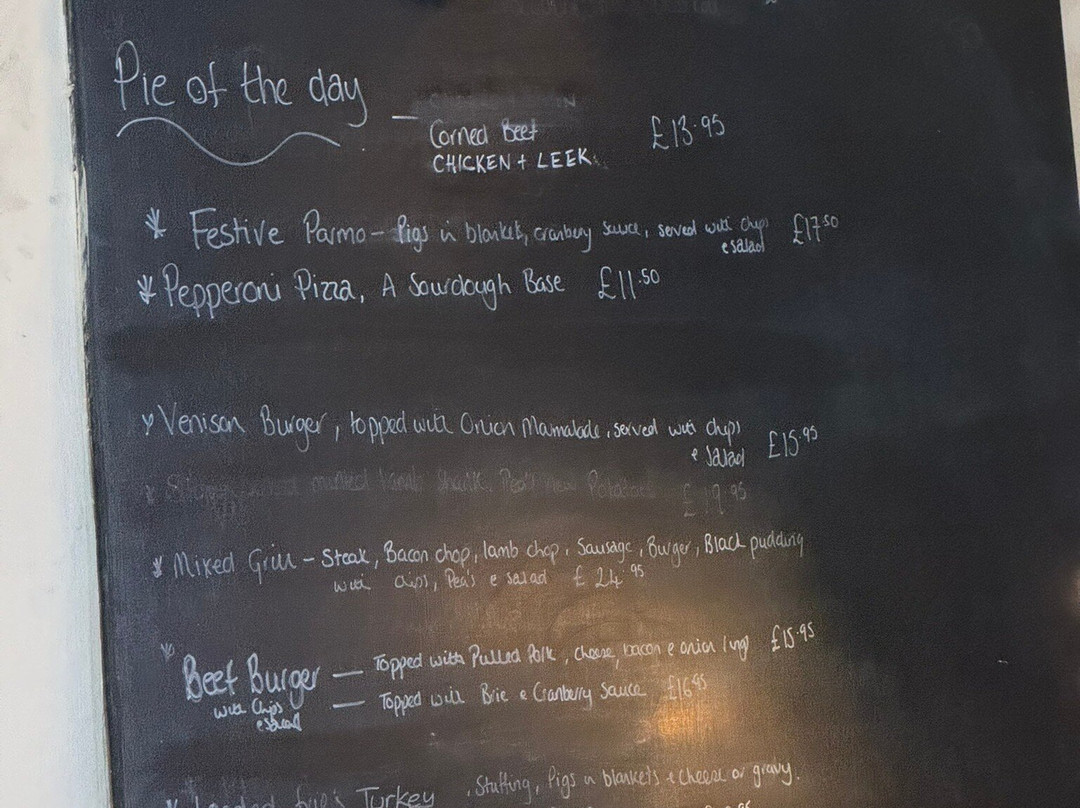 Pie of the day
— Corned Beef £13.95
CHICKEN + LEEK
* Festive Parmo - Pigs in blankets, cranberry sauce, served with chips £17.50
e salad
* Pepperoni Pizza, A Sourdough Base £11.50
Venison Burger, topped with Onion Marmalade, served with chips
e salad £15.95
minted lamb shank, Pea's new Potatoes
£19.95
* Mixed Grill - Steak, Bacon chop, lamb chop, Sausage, Burger, Black pudding
with chips, Pea's e salad £24.95
Beef Burger — Topped with Pulled Pork, cheese, bacon e onion ring £15.95
with Chips — Topped with Brie e Cranberry Sauce £16.95
e salad
Loaded frie's Turkey, Stuffing, Pigs in blankets e cheese or gravy.